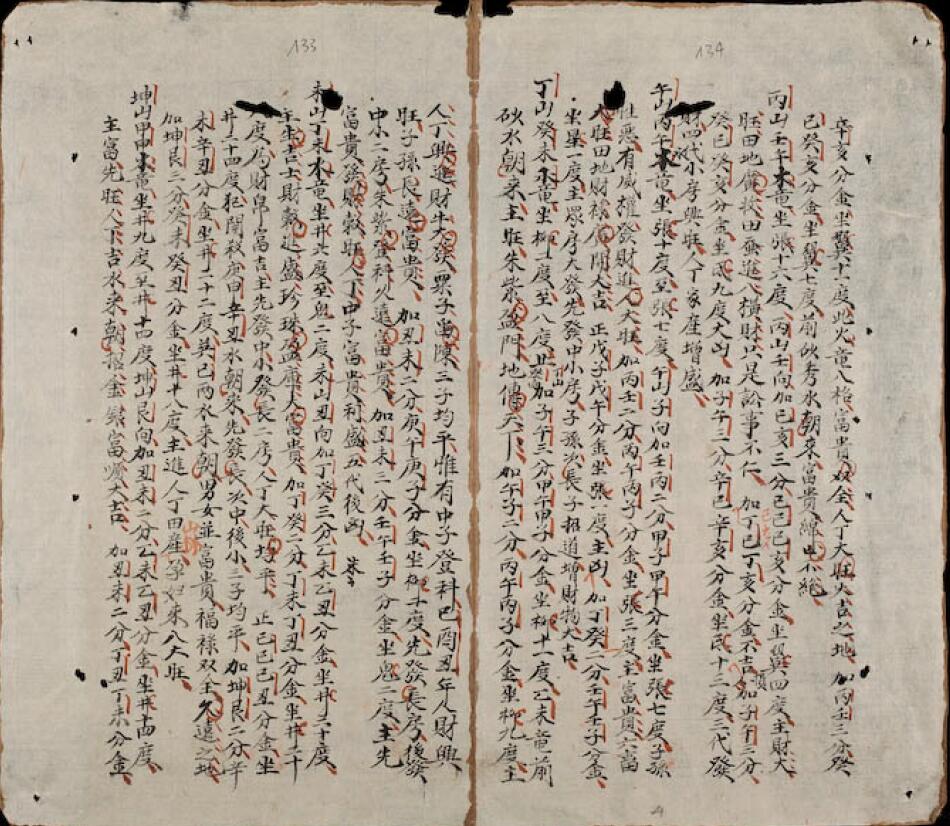 134
辛亥分金坐翼十一度此火竜入格富貴奴全人丁大旺大吉之地 加丙壬三分癸
巳癸亥分金坐翼七度前砂秀水朝來富貴綿 不絕
丙山壬午木竜坐張十六度丙山壬向加巳亥三分己巳己亥分金坐翼四度主財大
旺田地廣牧田蚕進八橫財只是訟事不仁 加丁巳丁亥分金不吉 加子午三分
癸巳癸亥分金坐 九度大凶 加子午二分辛巳辛亥分金坐 十三度三代發
財四代小房興旺人丁家産增盛
午山丙午 竜坐張十度至張七度午山子向加壬丙二分甲子甲午分金坐張七度子孫
性惡有威權發財進人大旺加丙壬二分丙午丙子分金坐張三度主富貴六畜
大旺田地財祿廣 人吉 正戊子戊午分金坐張一度主凶 加丁癸二分壬午壬子分金
坐星一度主眾房大發先發中小房子孫次長子招道增財物大吉
丁山癸未木竜坐柳二度至八度 加子午三分甲午甲子分金坐柳十一度乙未竜前
砂水朝來主旺朱紫盈門地傳天下 加午子二分丙午丙子分金坐柳九度主
133
人丁興進財牛大發粟 陳三子均平惟有中子登科巳酉丑年人財興
旺子孫良遠富貴 加丑未二分庚午庚子分金坐柳 度先發長房後發
中小二房朱紫登科久遠富貴 加丑未三分壬午壬子分金坐鬼二度主先
富貴發財穀旺人丁中子富貴利盛五代後凶
未山丁未水竜坐井 六度至鬼二度未山丑向加丁癸三分乙未乙丑分金坐井三十度
主坐吉士財穀進盛珍珠盈庫大富貴 加丁癸二分丁未丁丑分金坐井二十
八度為財帛富吉主先發中小發長二房人丁大旺均平 正己巳己丑分金坐
井二十四度犯関殺 辛丑水朝來先發長次中後小三子均平 加坤艮二分辛
未辛丑分金坐井二十二度巽巳丙水來朝男女並富貴福祿双全久遠之地
加坤艮三分癸未癸丑分金坐井十八度主進人丁田産孕 來八大旺
坤山甲申 竜坐井九度至井十四度坤山艮向加丑未三分乙未乙丑分金坐井十四度
主富先旺人丁吉水來朝 金 富 大吉 加丑未二分丁丑丁未分金